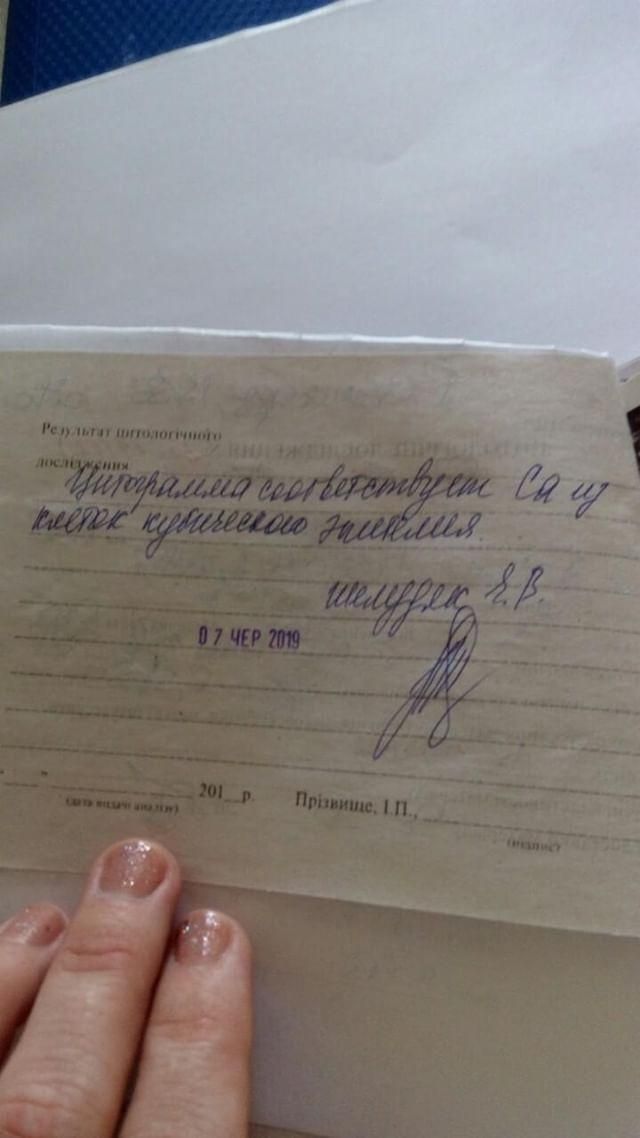 Результат цитологічного
дослідження
Цитограмма соответствует Са из
клеток кубического эпителия.
Шелудяк Е.В.
07 ЧЕР 2019
" " 201__р. Прізвище, І.П.,
(дата видачі аналізу)
(підпис)